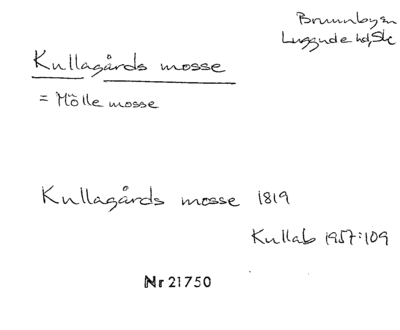 Brunnby sn
Luggude hd, Sk
Kullagårds mosse
= Mölle mosse
Kullagårds mosse 1819
Kullab 1957:109
Nr 21750